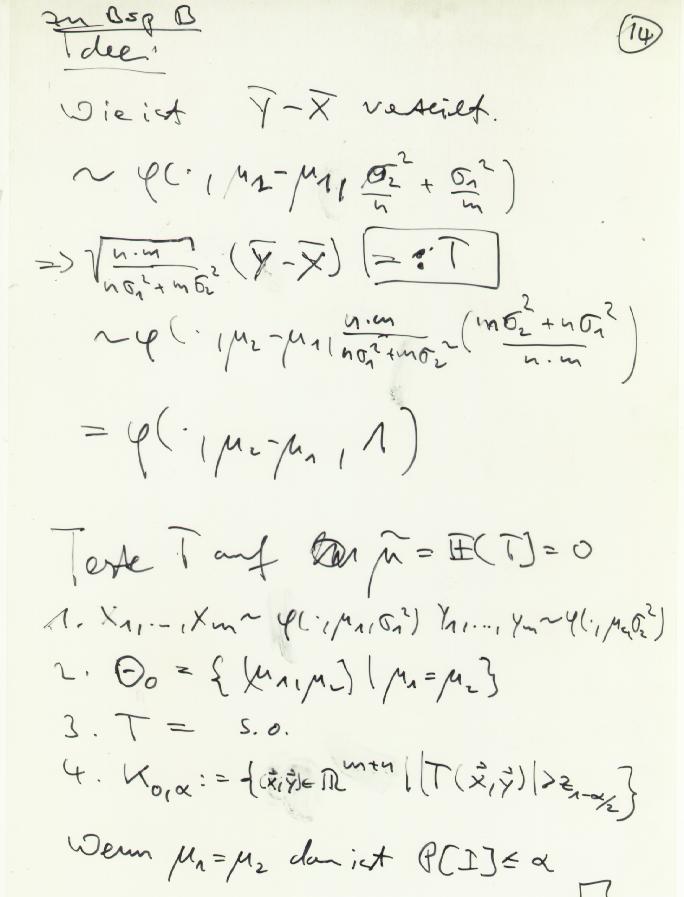 zu Bsp B
14
Idee:
Wie ist Y̅ - X̅ verteilt.
~ φ(·, μ₂-μ₁, σ₂²/n + σ₁²/m)
=> √(n·m / (nσ₁² + mσ₂²)) (Y̅ - X̅) =: T
~ φ(·, μ₂-μ₁, n·m/(nσ₁²+mσ₂²) ((mσ₂² + nσ₁²)/(n·m)))
= φ(·, μ₂-μ₁, 1)
Teste T auf μ̃ = E[T] = 0
1. X₁,...,Xₘ ~ φ(·,μ₁,σ₁²) Y₁,...,Yₘ ~ φ(·,μ₂,σ₂²)
2. Θ₀ = {(μ₁,μ₂) | μ₁=μ₂}
3. T = s.o.
4. K₀,α := {(x⃗,y⃗) ∈ ℝᵐ⁺ⁿ | |T(x⃗,y⃗)| > z₁₋α/₂}
Wenn μ₁=μ₂ dan ist P[I] ≤ α